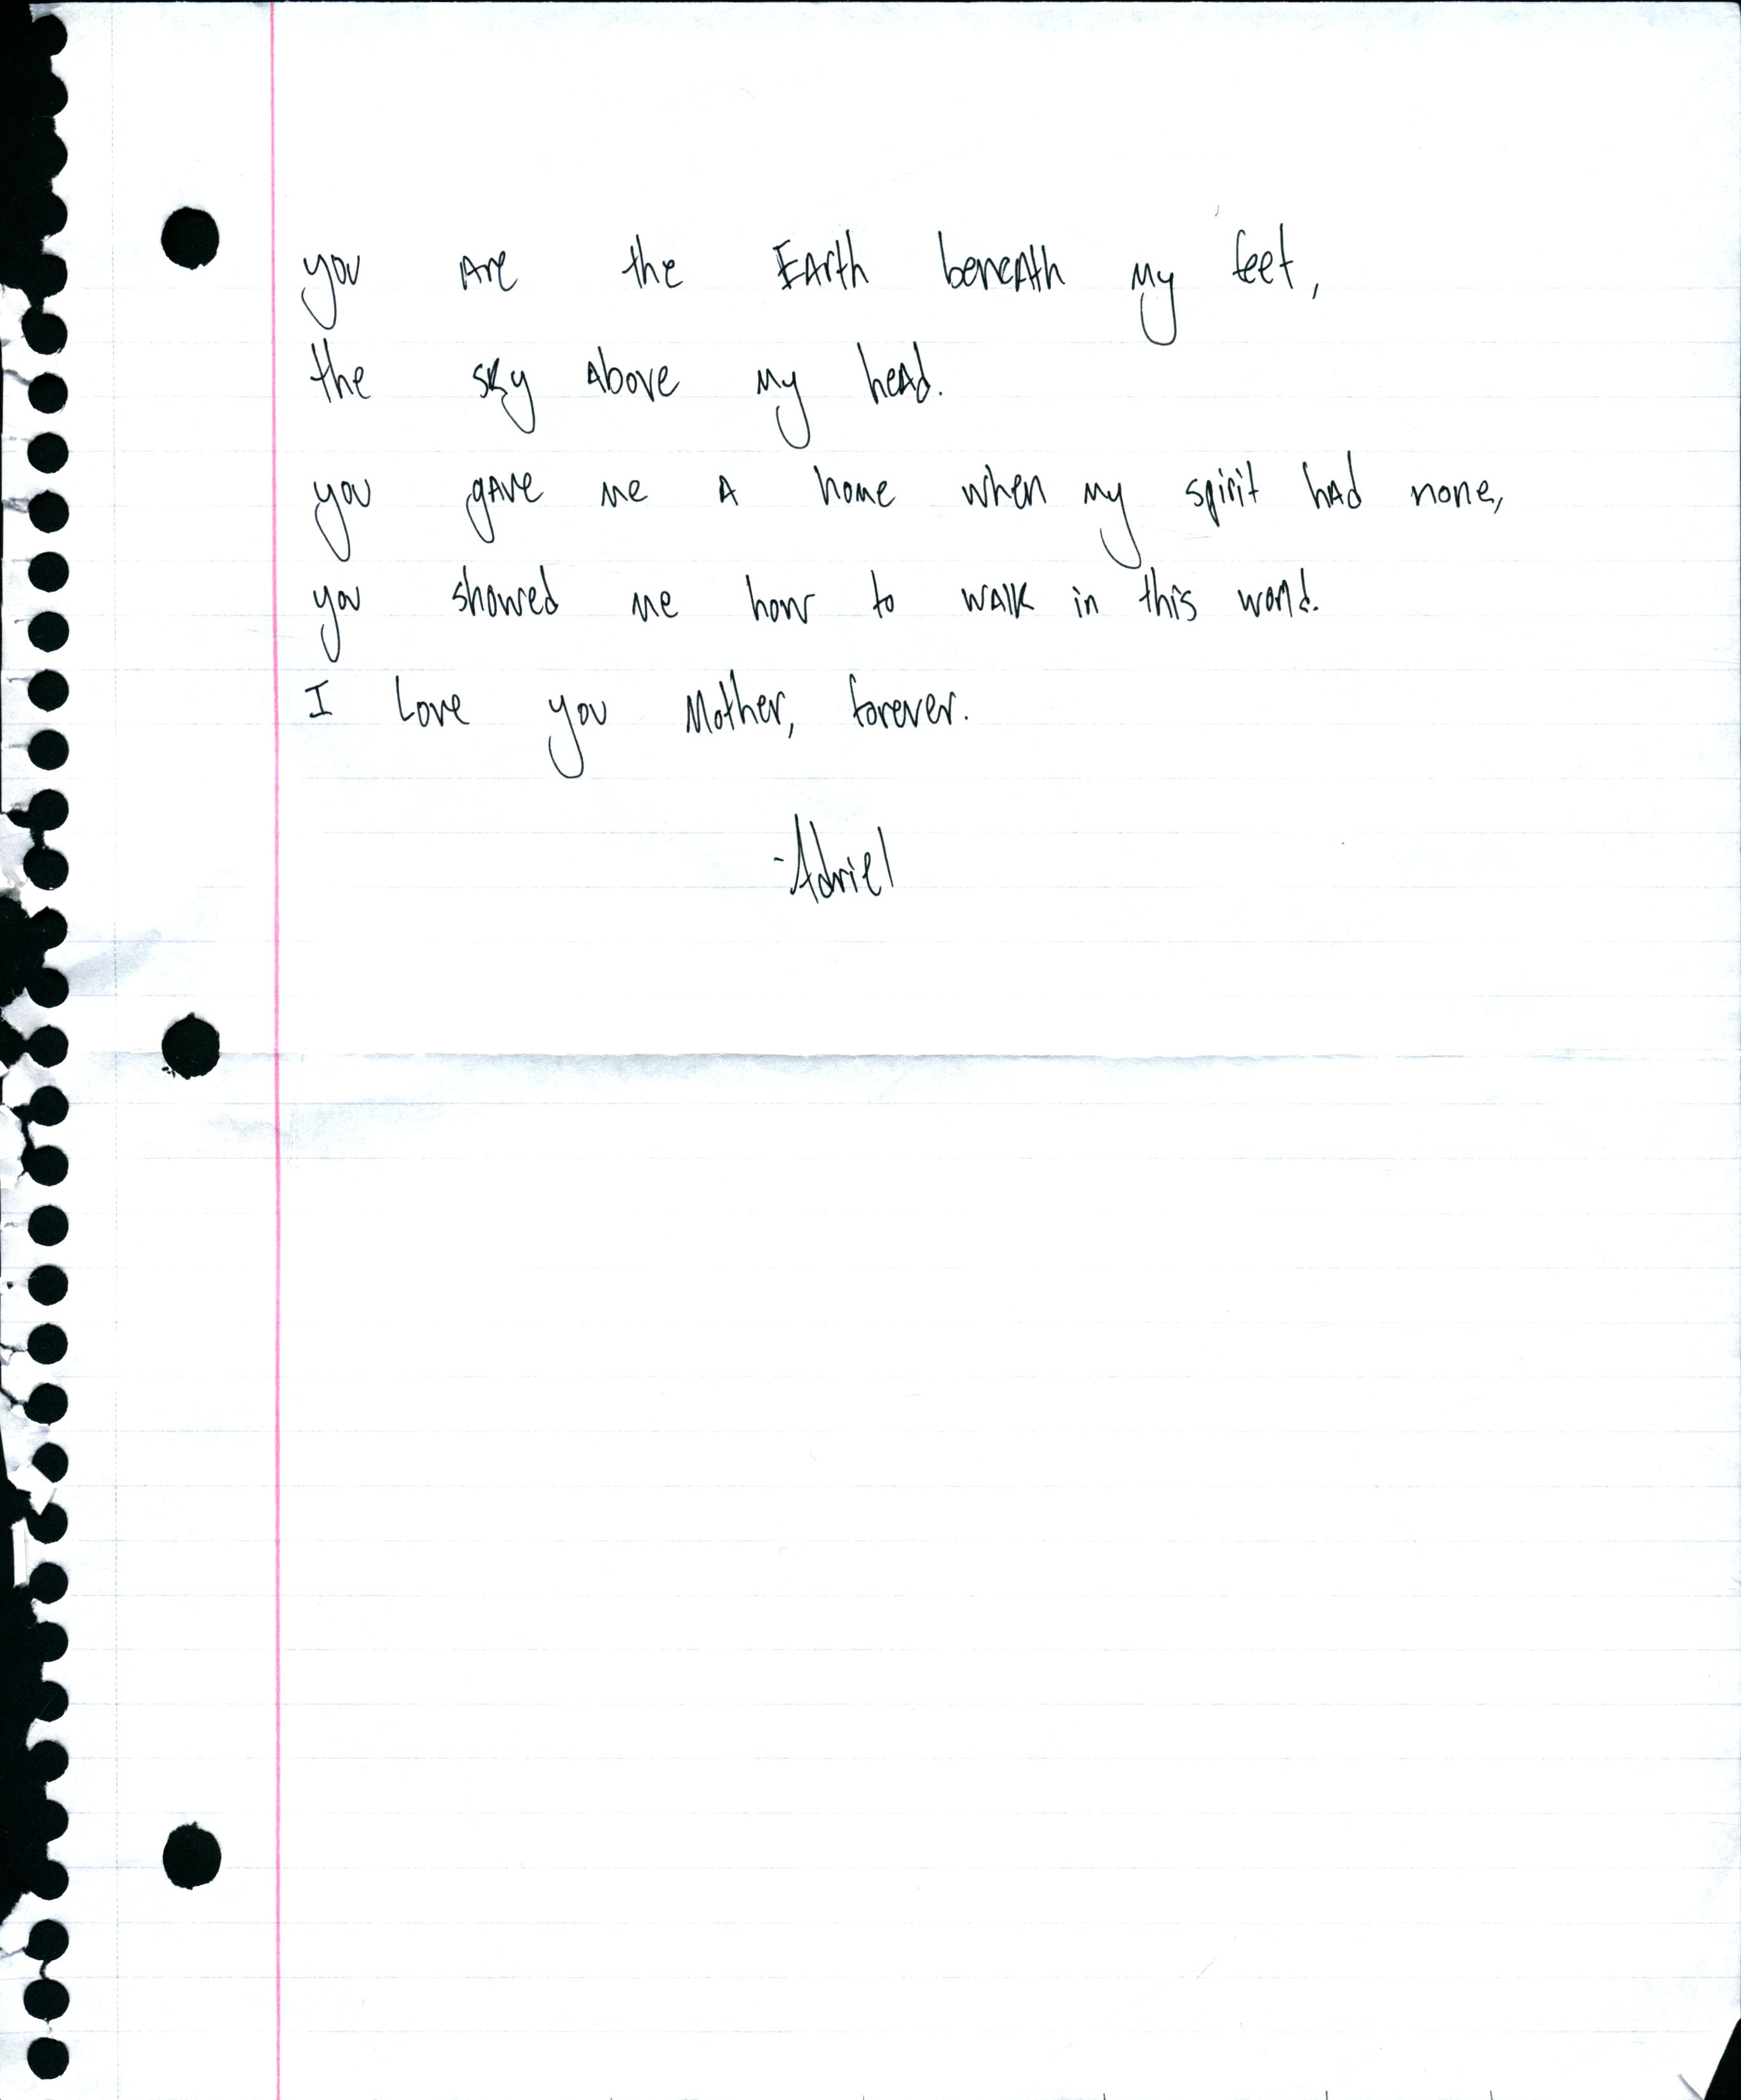 you Are the EArth beneAth my feet,
the sky Above my heAd.
you gAve me A home when my spirit hAd none,
you showed me how to wAlk in this world.
I Love you Mother, forever.
-Adriel